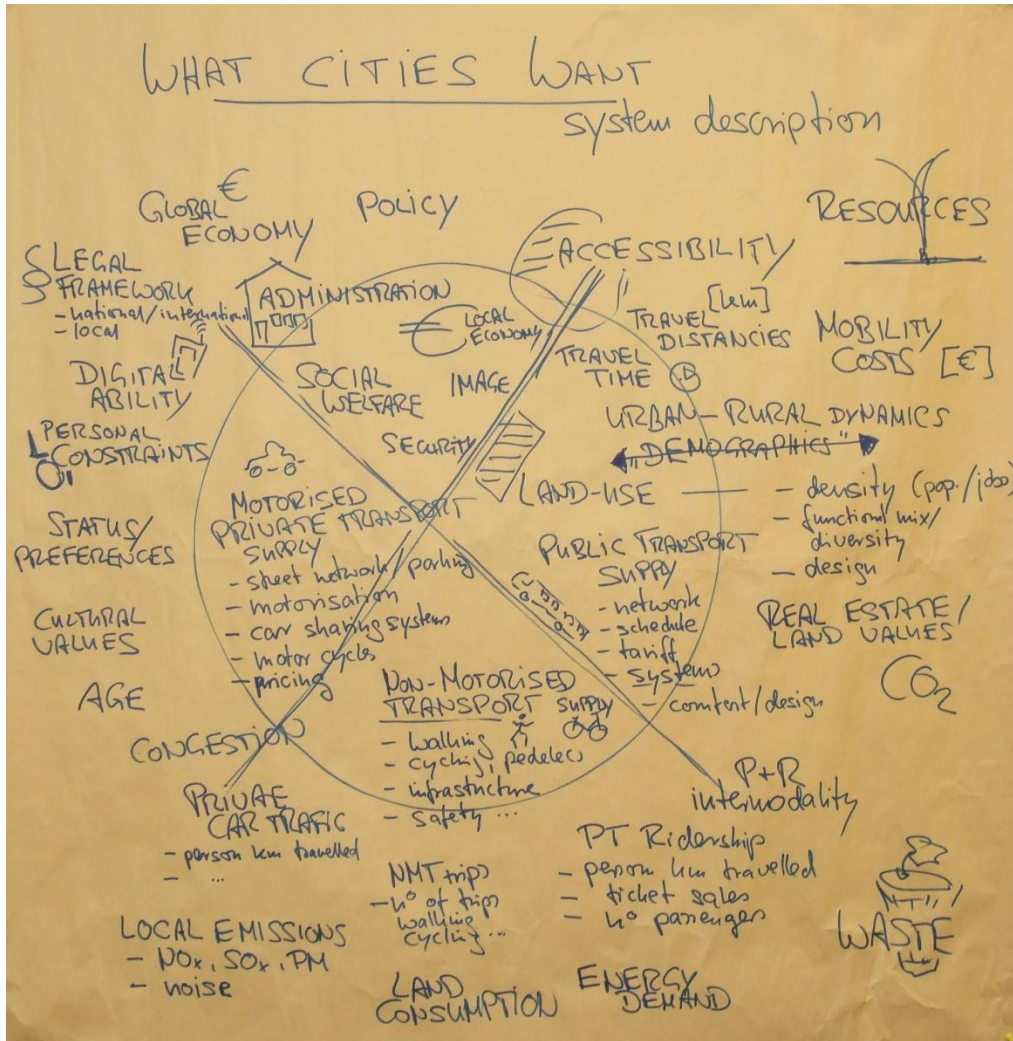 WHAT CITIES WANT
system description
GLOBAL €
ECONOMY
POLICY
RESOURCES
§ LEGAL
FRAMEWORK
- national/international
- local
ADMINISTRATION
€ LOCAL
ECONOMY
ACCESSIBILITY
[km]
TRAVEL
DISTANCES
MOBILITY
COSTS [€]
DIGITAL
ABILITY
SOCIAL
WELFARE
IMAGE
TRAVEL
TIME
PERSONAL
CONSTRAINTS
SECURITY
URBAN-RURAL DYNAMICS
"DEMOGRAPHICS"
LAND-USE
- density (pop./jobs)
- functional mix/
diversity
- design
STATUS/
PREFERENCES
MOTORISED
PRIVATE TRANSPORT
SUPPLY
- street network/parking
- motorisation
- car sharing systems
- motor cycles
- pricing
PUBLIC TRANSPORT
SUPPLY
- network
- schedule
- tariff
- systems
- comfort/design
REAL ESTATE/
LAND VALUES
CULTURAL
VALUES
AGE
CO2
NON-MOTORISED
TRANSPORT SUPPLY
- walking
- cycling, pedelecs
- infrastructure
- safety ...
CONGESTION
P+R
intermodality
PRIVATE
CAR TRAFIC
- person km travelled
- ...
NMT trips
- n° of trips
walking
cycling ...
PT Ridership
- person km travelled
- ticket sales
- n° passengers
WASTE
LOCAL EMISSIONS
- NOx, SOx, PM
- noise
LAND
CONSUMPTION
ENERGY
DEMAND